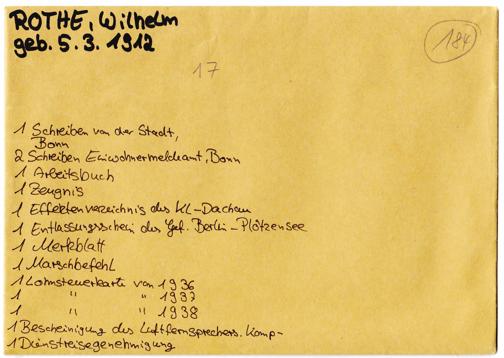 ROTHE, Wilhelm
geb. 5. 3. 1912
184
17
1 Schreiben von der Stadt,
Bonn
2 Schreiben Einwohnermeldeamt, Bonn
1 Arbeitsbuch
1 Zeugnis
1 Effektenverzeichnis des KL-Dachau
1 Entlassungsschein des Gef. Berlin-Plötzensee
1 Merkblatt
1 Marschbefehl
1 Lohnsteuerkarte von 1936
1 " " 1937
1 " " 1938
1 Bescheinigung des Luftfernsprechers. Komp-
1 Dienstreisegenehmigung